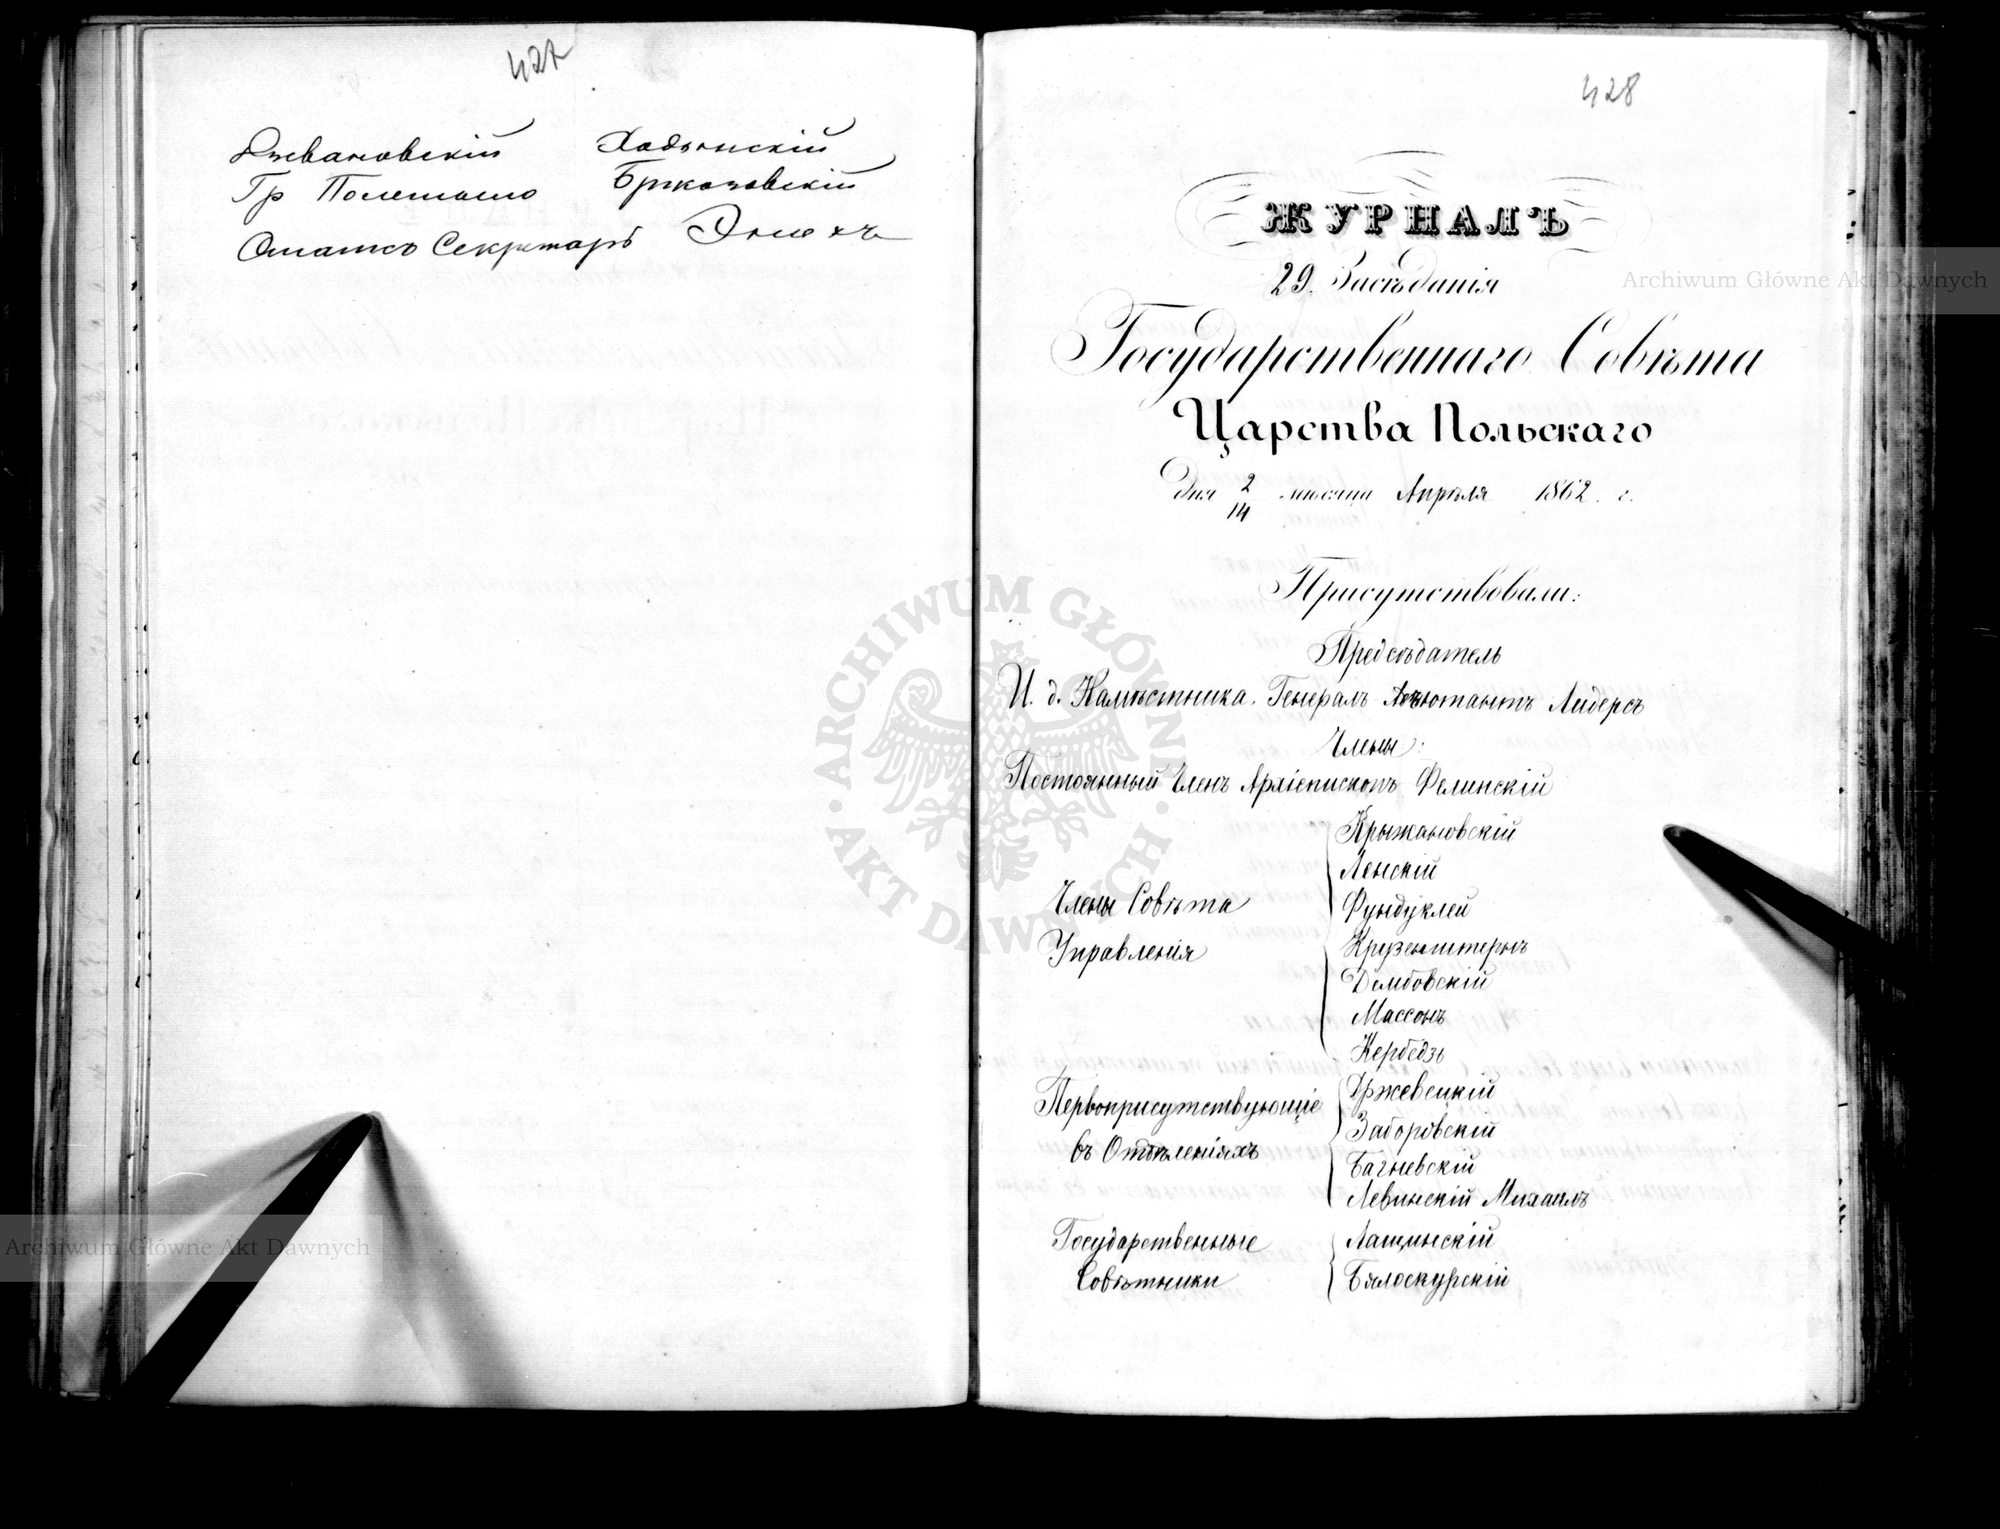 427
Држевановскій Ходынскій
Гр Полетыло Бржозовскій
Статсъ Секретарь Энохъ
428
ЖУРНАЛЪ
29. Засѣданія
Государственнаго Совѣта
Царства Польскаго
Дня 2/14 мѣсяца Апрѣля 1862. г.
Присутствовали:
Предсѣдатель
И. д. Намѣстника. Генералъ-Адъютантъ Лидерсъ
Члены:
Постоянный Членъ Архіепископъ Фелинскій
Члены Совѣта
Управленія
Крыжановскій
Ленскій
Фундуклей
Крузенштернъ
Дембовскій
Массонъ
Кербедзь
Первоприсутствующіе
въ Отдѣленіяхъ
Држевецкій
Заборовскій
Багневскій
Левинскій Михаилъ
Государственные
Совѣтники
Лащинскій
Бялоскурскій
Archiwum Główne Akt Dawnych
Archiwum Główne Akt Dawnych
ARCHIWUM GŁÓWNE
AKT DAWNYCH